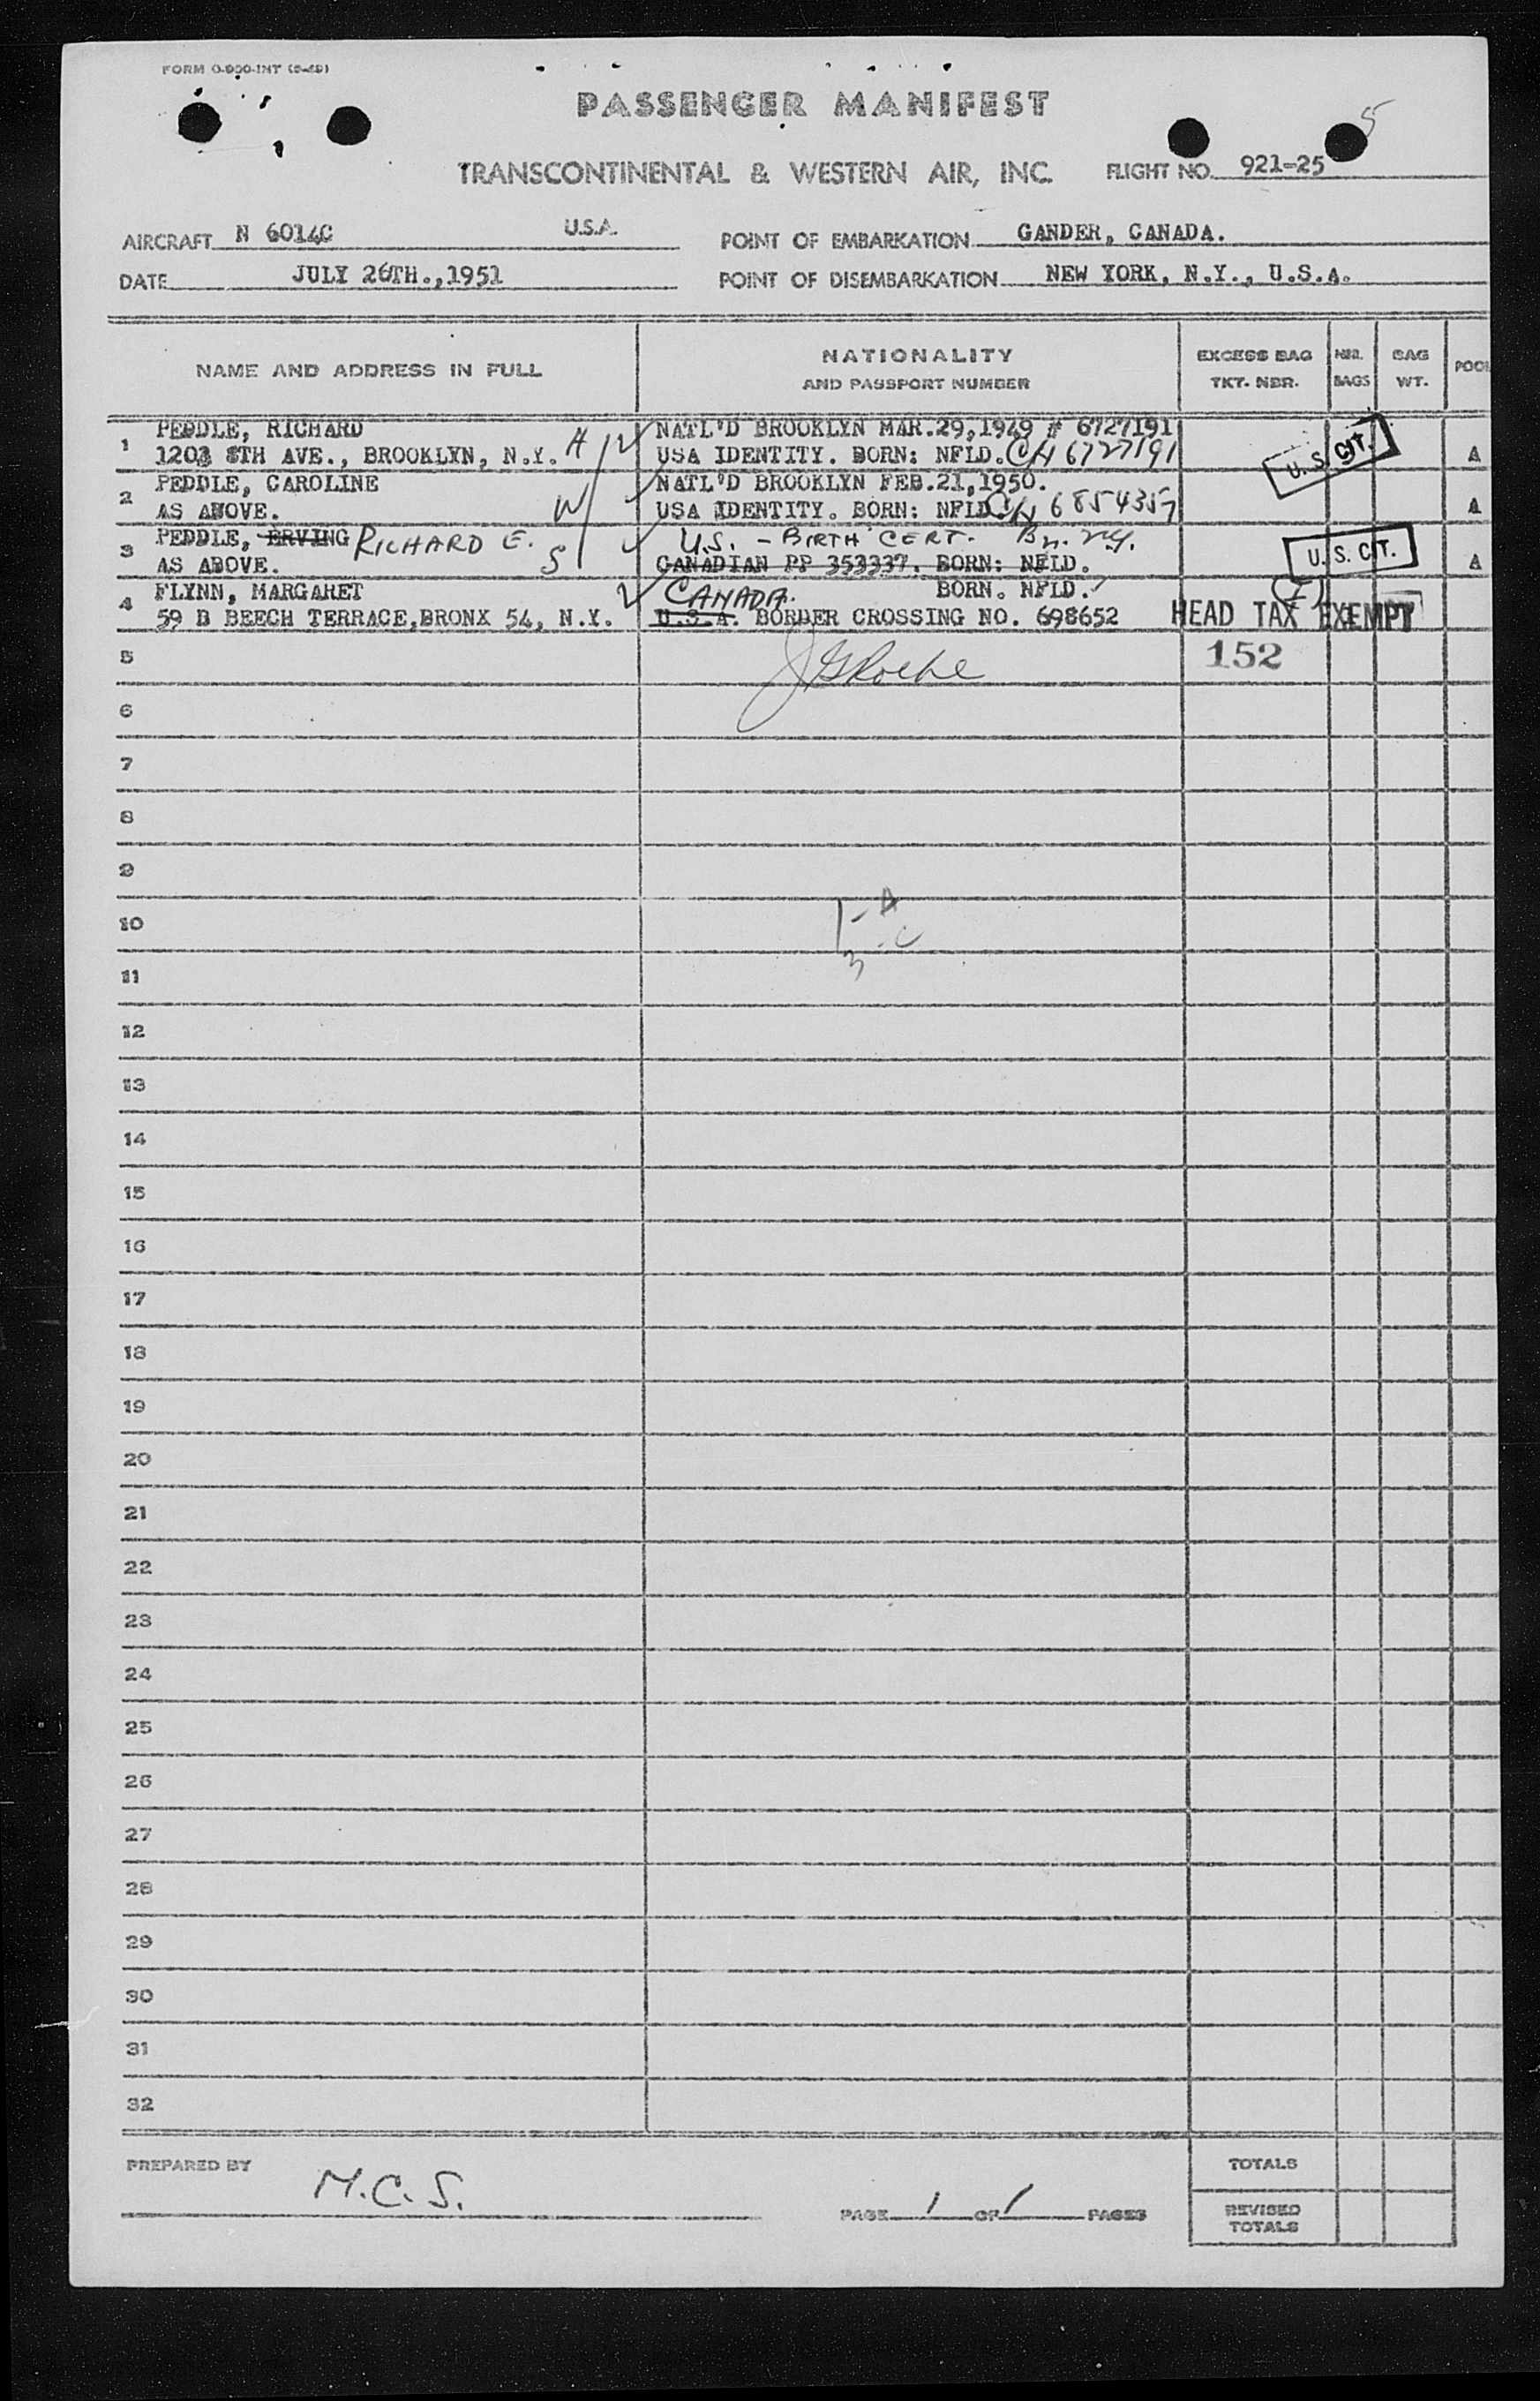 FORM O-900-INT (5-49)
5
PASSENGER MANIFEST
TRANSCONTINENTAL & WESTERN AIR, INC. FLIGHT NO. 921-25
AIRCRAFT N 6014C U.S.A. POINT OF EMBARKATION GANDER, CANADA.
DATE JULY 26TH.,1951 POINT OF DISEMBARKATION NEW YORK, N.Y., U.S.A.
NAME AND ADDRESS IN FULL NATIONALITY AND PASSPORT NUMBER EXCESS BAG TKT. NBR. NBR. BAGS BAG WT.
1 PEDDLE, RICHARD NATL'D BROOKLYN MAR.29,1949 # 6727191
1203 8TH AVE., BROOKLYN, N.Y. H USA IDENTITY. BORN: NFLD. CN 6727191 U. S. CIT. A
2 PEDDLE, CAROLINE NATL'D BROOKLYN FEB.21,1950.
AS ABOVE. W USA IDENTITY. BORN: NFLD. CN 6854357 A
3 PEDDLE, ERVING RICHARD E. U.S. - BIRTH CERT. Bn. N.Y.
AS ABOVE. S CANADIAN PP 353337. BORN: NFLD. U. S. CIT. A
4 FLYNN, MARGARET CANADA. BORN. NFLD.
59 B BEECH TERRACE,BRONX 54, N.Y. U.S.A. BORDER CROSSING NO. 698652 HEAD TAX EXEMPT
5 152
6
7
8
9
10 1-A
3-C
11
12
13
14
15
16
17
18
19
20
21
22
23
24
25
26
27
28
29
30
31
32
PREPARED BY M.C.S. TOTALS
PAGE 1 OF 1 PAGES REVISED TOTALS